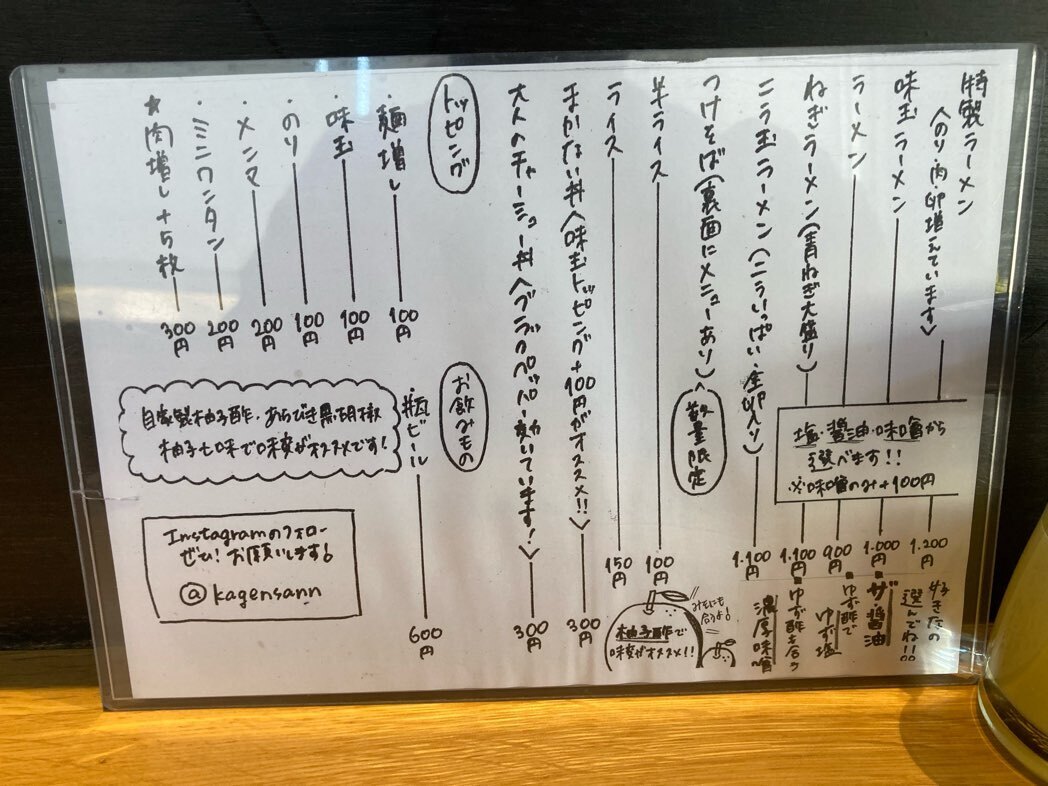 特製ラーメン
〈のり・肉・卵増えています〉
1.200円
味玉ラーメン
1.000円
ラーメン
900円
ねぎラーメン(青ねぎ大盛り)
1.100円
ニラ玉ラーメン(ニラいっぱい・全卵入り)
1.100円
塩・醤油・味噌から
選べます!!
※味噌のみ+100円
好きなの
選んでね!!
ザ醤油
ゆず酢で
ゆず塩
ゆず酢も合う
濃厚味噌
つけそば(裏面にメニューあり)
数量限定
半ライス
100円
ライス
150円
まかない丼〈味玉トッピング+100円がオススメ!!〉
300円
大人のチャーシュー丼〈ブラックペッパー効いています!〉
300円
みそにも
合うよ!
柚子酢で
味変がオススメ!!
トッピング
・麺増し
100円
・味玉
100円
・のり
100円
・メンマ
200円
・ミニワンタン
200円
★肉増し+5枚
300円
お飲みもの
・瓶ビール
600円
自家製柚子酢・あらびき黒胡椒
柚子七味で味変がオススメです!
Instagramのフォロー
ぜひ!お願いします!
@kagensann